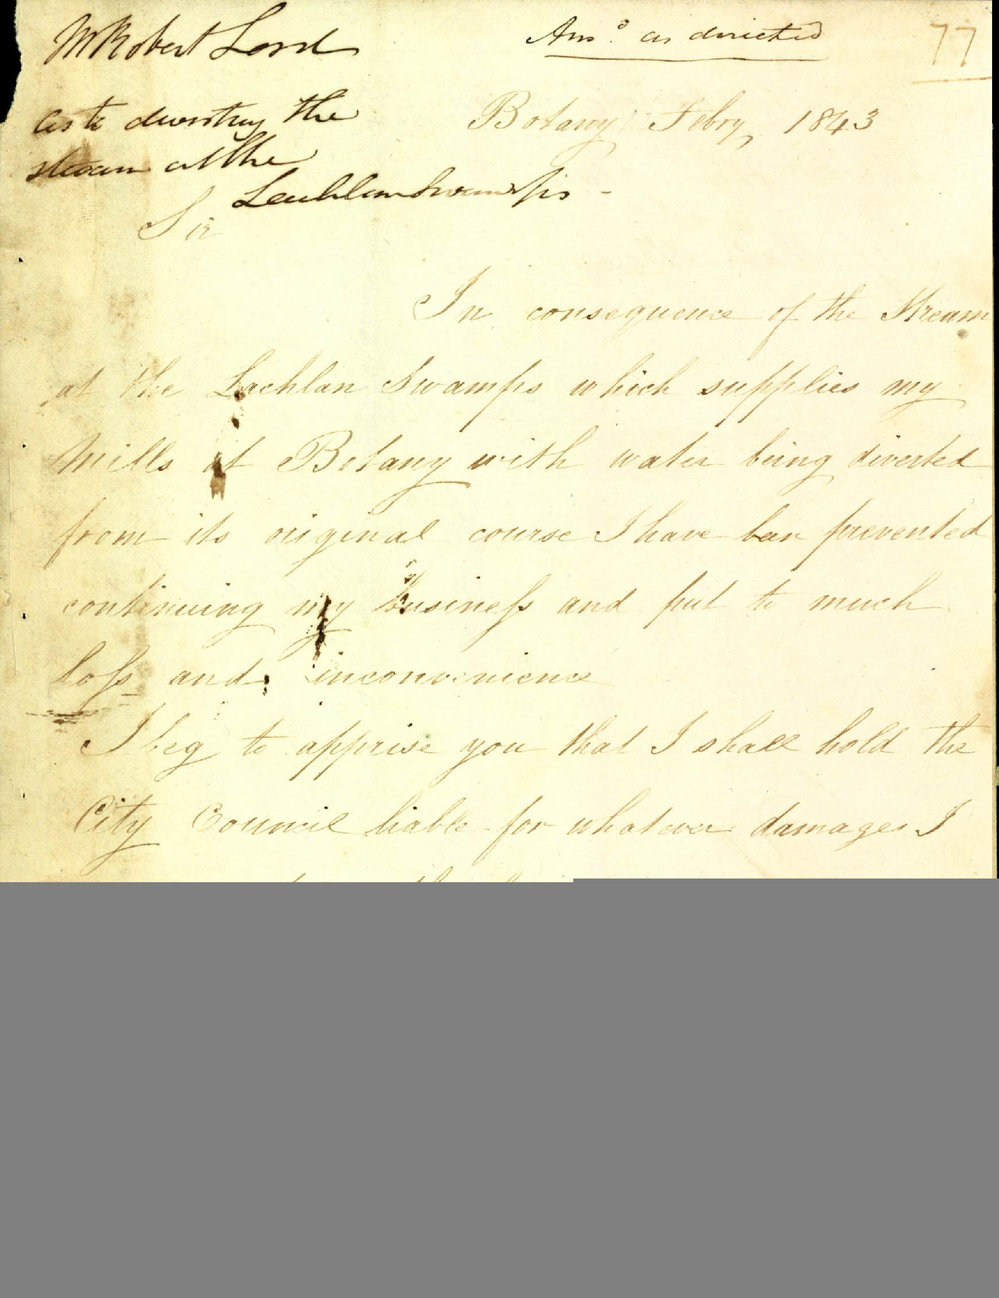 Mr Robert Lord
Ansd. as directed
77
as to diverting the
stream at the
Lachlan Swamps -
Botany Febry 1843
Sir
In consequence of the Stream
at the Lachlan Swamps which supplies my
Mills at Botany with water being diverted
from its original course I have been prevented
continuing my business and put to much
loss and inconvenience
I beg to apprise you that I shall hold the
City Council liable for whatever damages I